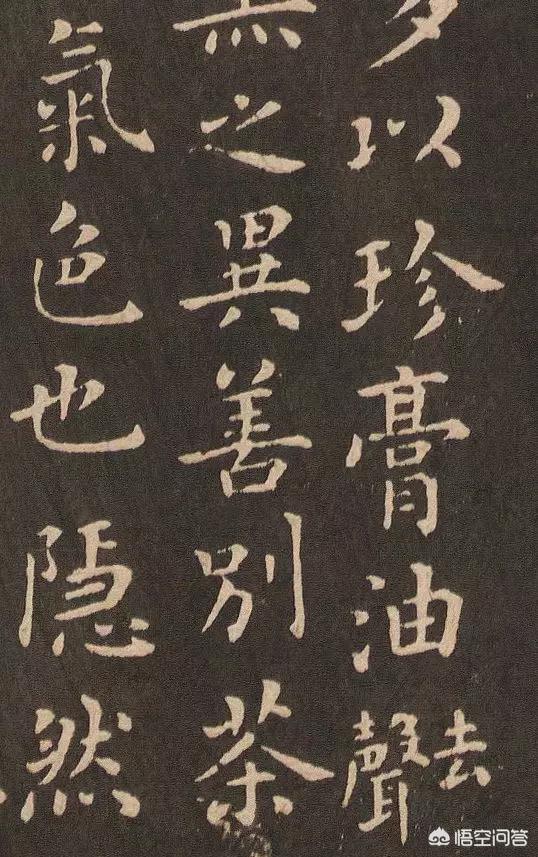 以珍膏油去聲
之異善別茶
氣色也隱然
悟空问答